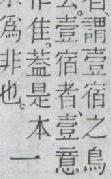 謂壹宿之鳥
云。壹宿者、壹意
作隹。蓋是本
為非也。一